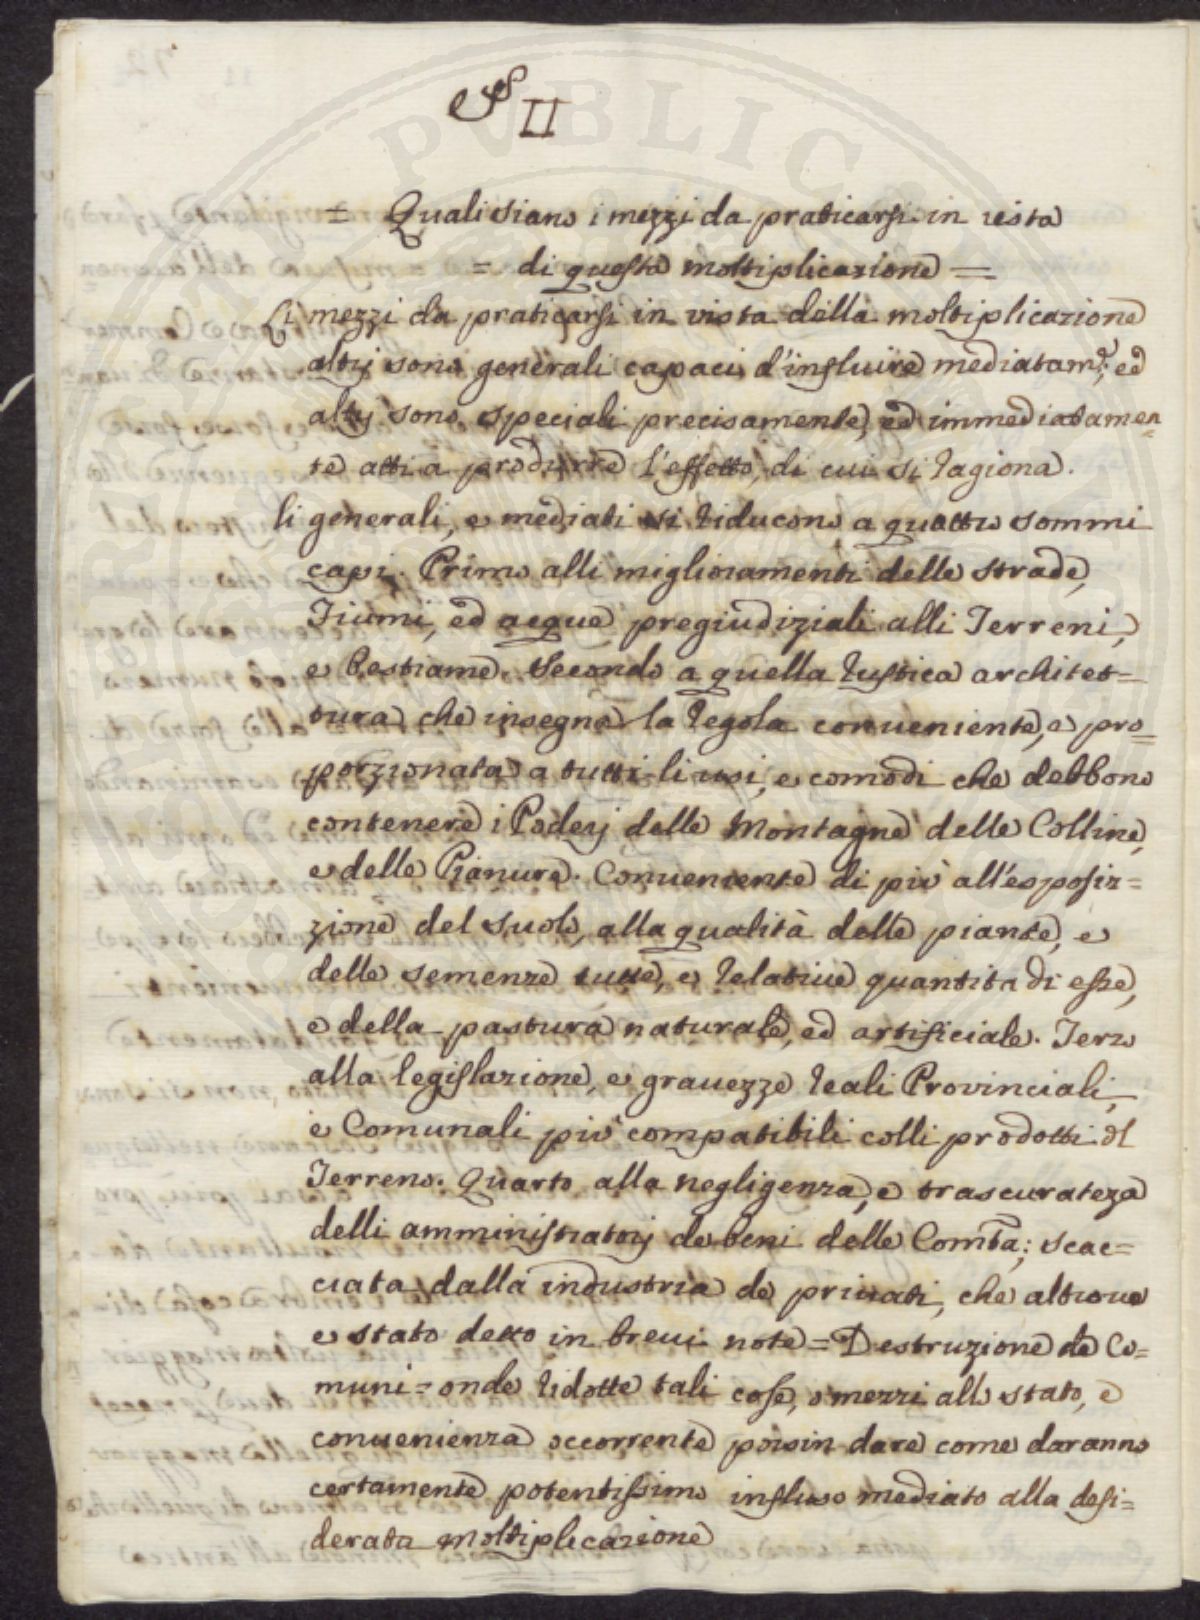 § II
= Quali siano i mezzi da praticarsi in vista
= di questa moltiplicazione =
Li mezzi da praticarsi in vista della moltiplicazione
altrj sono generali capaci d'influire mediatam.e, ed
altrj sono speciali precisamente, ed immediatamen=
te atti a produrre l'effetto, di cui si ragiona.
li generali, e mediati si riducono a quattro sommi
capi. Primo alli miglioramenti delle strade,
Fiumi, ed acque pregiudiziali alli Terreni,
e Bestiame. Secondo a quella rustica architet=
tura che insegna la regola conveniente, e pro=
porzionata a tutti li usi, e comodi che debbono
contenere i Poderj delle Montagne delle Colline,
e delle Pianure. Conveniente di più all'esposiz=
zione del suolo, alla qualità delle piante, e
delle semenze tutte, e relative quantità di esse,
e della pastura naturale, ed artificiale. Terzo
alla legislazione, e gravezze reali Provinciali,
e Comunali più compatibili colli prodotti dl
Terreno. Quarto alla negligenza, e trascurateza
delli amministratorj de beni delle Comtà; scac=
ciata dalla industria de privati, che altrove
e stato detto in brevi note = Destruzione de Co=
muni = onde ridotte tali cose, o mezzi allo stato, e
convenienza occorrente dare come daranno
certamente potentissimo influsso mediato alla desi=
derata moltiplicazione